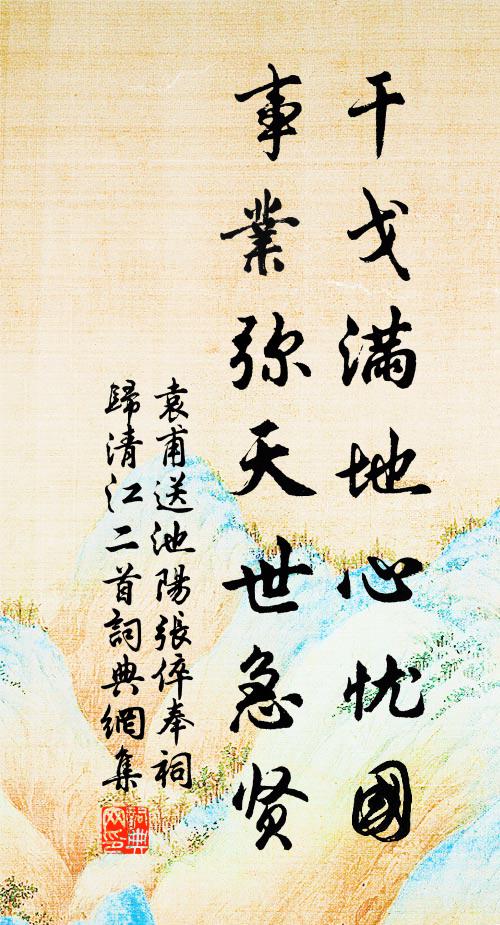 干戈满地心忧國
事業弥天世急贤
袁甫送池陽張倅奉祠
歸清江二首詞典網集
詞典
网印